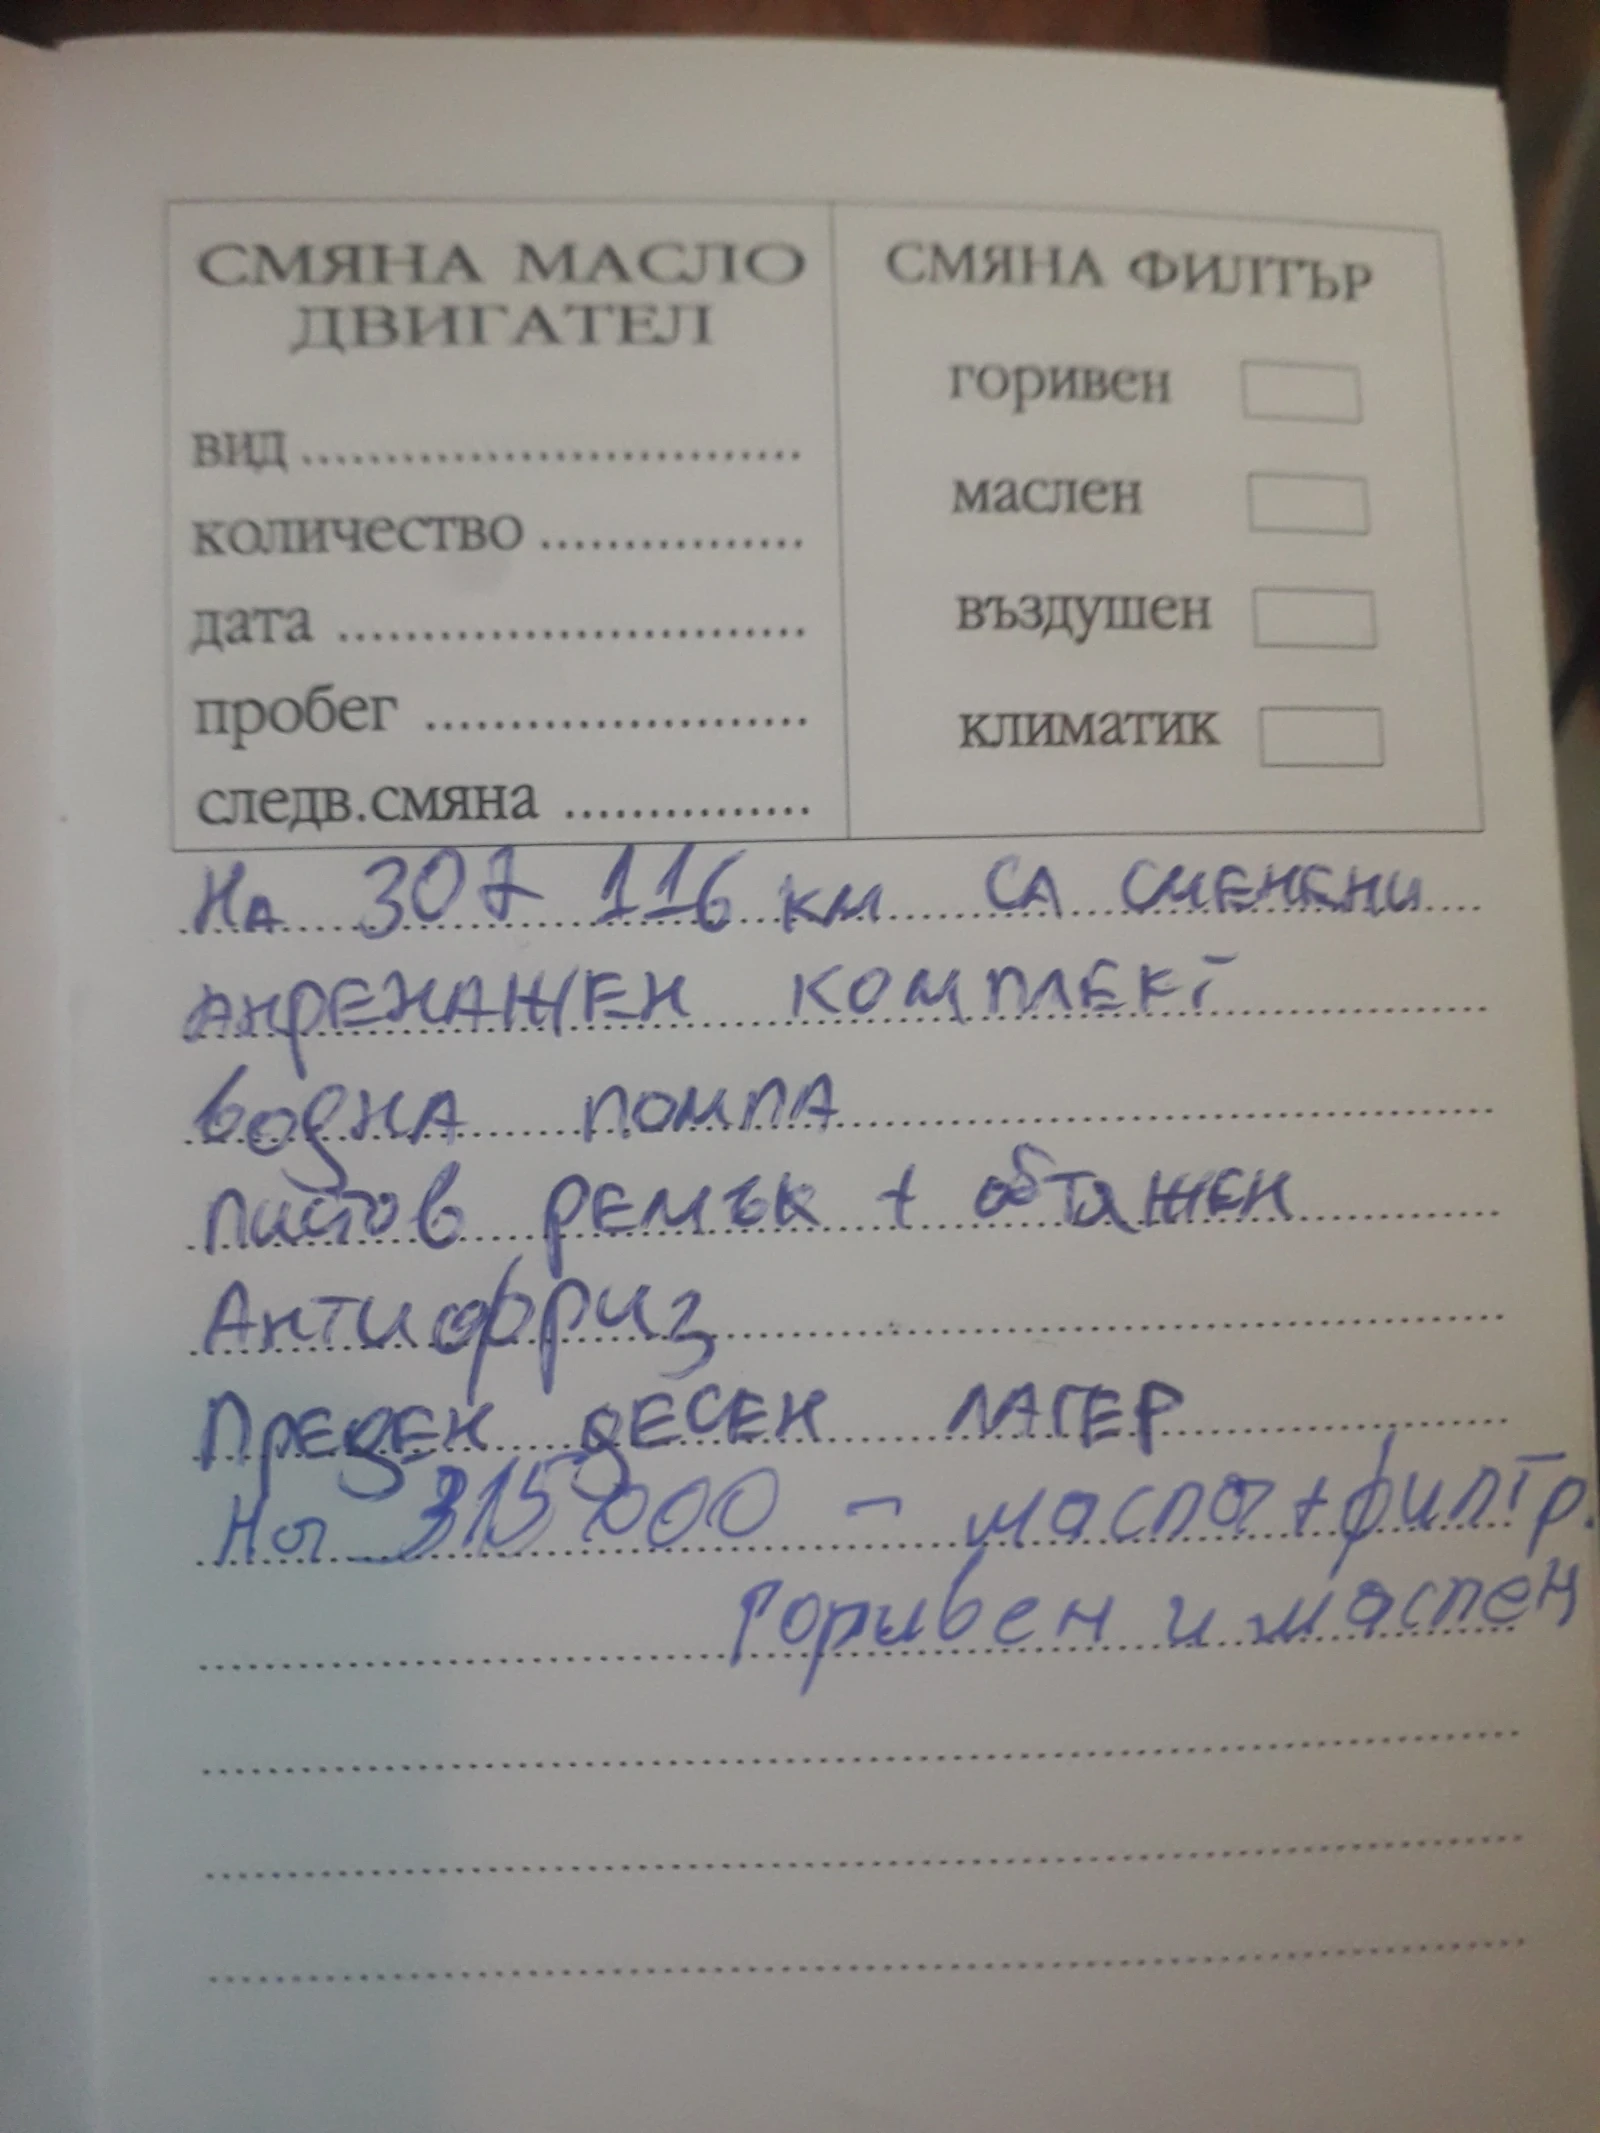 СМЯНА МАСЛО
ДВИГАТЕЛ
вид
количество
дата
пробег
следв.смяна
СМЯНА ФИЛТЪР
горивен
маслен
въздушен
климатик
На 307 116 км СА СМЕНЕНИ
АНРЕНАЖЕН КОМПЛЕКТ
водна помпа
пистов ремък + обтяжен
Антифриз
Преден десен лагер
На 315 000 - масло + филтр.
горивен и маслен